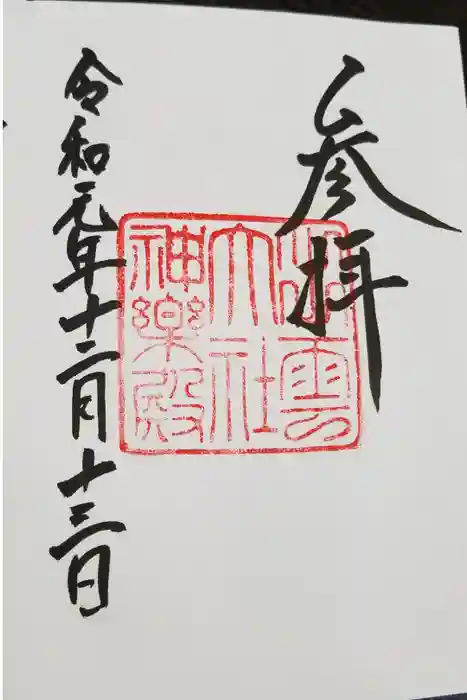 参拝
出雲
大社
神楽殿
令和元年十二月十三日